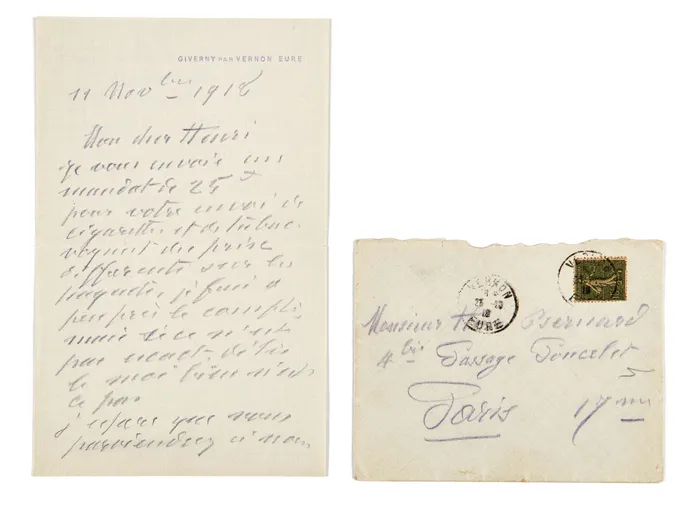 GIVERNY PAR VERNON EURE
11 Novbre 1918
Mon cher Henri
je vous envoie un
mandat de 25 f
pour votre envoi de
cigarettes et de tabac
voyant des prix
différents sur les
paquets, j'ai fait à
peu près le compte
mais si ce n'est
pas exact dites
le moi bien n'est
ce pas
j'espère que vous
parviendrez à nous
VERNON
EURE
Monsieur H Bernard
4 bis Passage Poncelet
Paris 17me